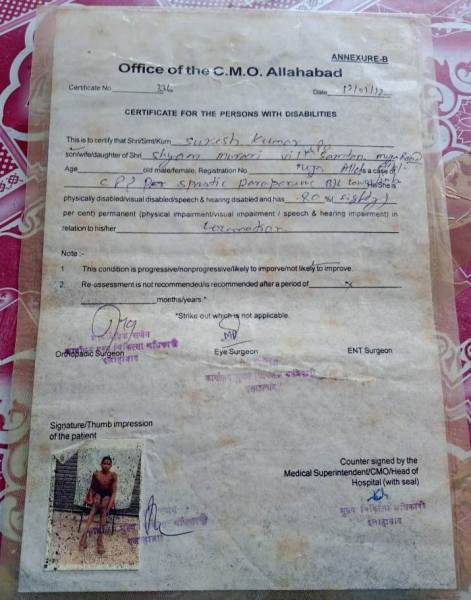 ANNEXURE-B
Office of the C.M.O. Allahabad
Certificate No. 336 Date
CERTIFICATE FOR THE PERSONS WITH DISABILITIES
This is to certify that Shri/Smt/Kum Suresh Kumar
son/wife/daughter of Shri Shyam Murari
Age old male/female, Registration No. a case of
C P
He/She is
physically disabled/visual disabled/speech & hearing disabled and has 80 %(
per cent) permanent (physical impairment/visual impairment / speech & hearing impairment) in
relation to his/her
Note :-
1 This condition is progressive/nonprogressive/likely to imporve/not likely to improve.
2. Re-assessment is not recommended/is recommended after a period of
months/years.*
*Strike out which is not applicable.
Orthopadic Surgeon Eye Surgeon ENT Surgeon
कार्यालय मुख्य चिकित्सा अधिकारी
इलाहाबाद
कार्यालय मुख्य चिकित्सा अधिकारी
इलाहाबाद
Signature/Thumb impression
of the patient
Counter signed by the
Medical Superintendent/CMO/Head of
Hospital (with seal)
मुख्य चिकित्सा अधिकारी
इलाहाबाद
इलाहाबाद